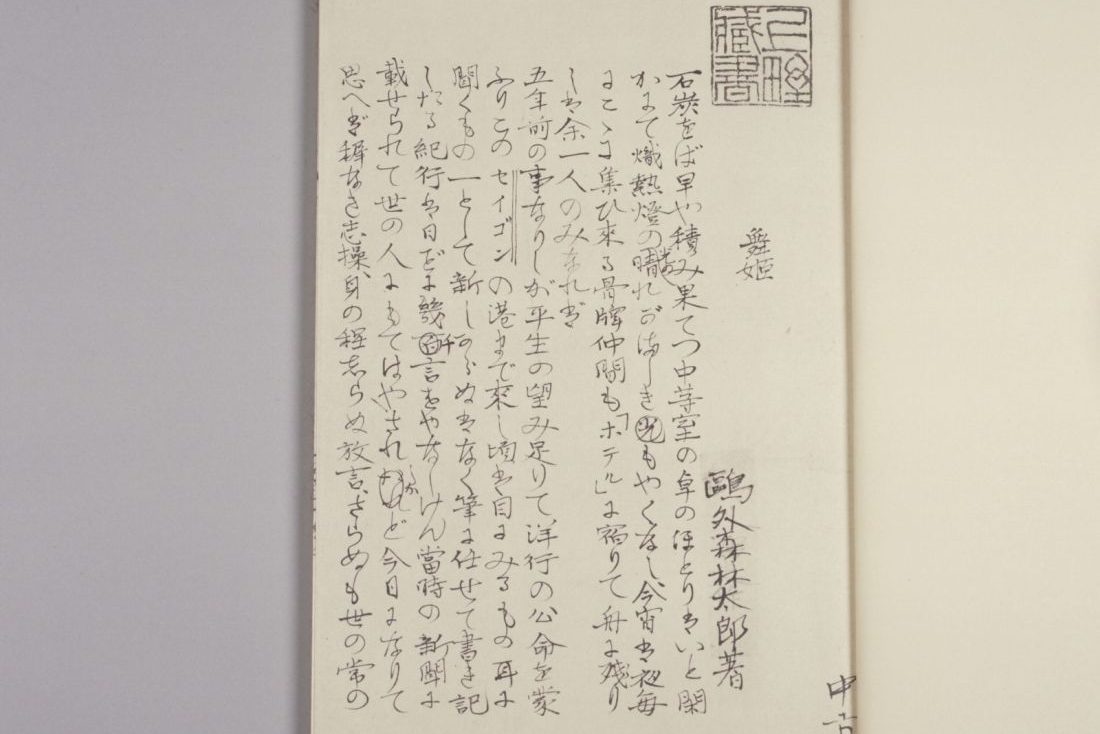 上野藏書
舞姫
鷗外森林太郎著
石炭をば早や積み果てつ中等室の卓のほとりはいと閑
かにて熾熱燈の光の晴れがましき光もやくなし、今宵は夜毎
にこゝに集ひ來る骨牌仲間も「ホテル」に宿りて舟に殘り
しは余一人のみなれば
五年前の事なりしが平生の望み足りて洋行の公命を蒙
ふりこのセイゴンの港まで來し頃は目にみるもの耳に
聞くもの一として新しからぬはなく筆に任せて書き記
したる紀行は日ごとに幾百千言をやなしけん當時の新聞に
載せられて世の人にもてはやされしかど今日になりて
思へば穉なき志操、身の程志らぬ放言、さらぬも世の常の
中